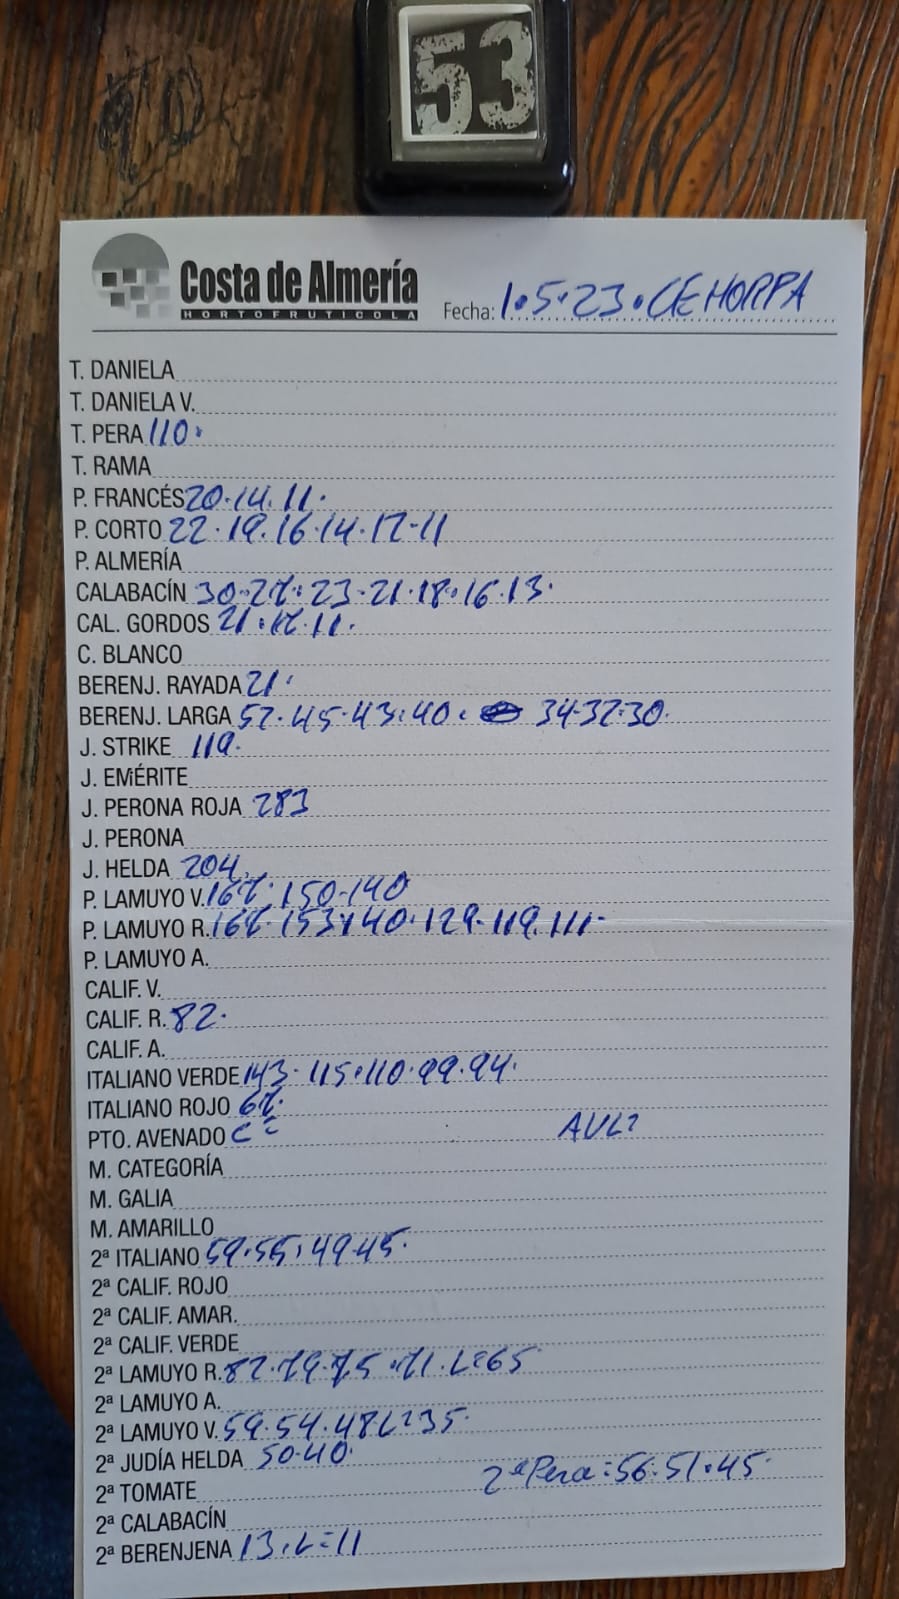 53
Costa de Almería
HORTOFRUTICOLA
Fecha: 1.5.23.CEHORPA
T. DANIELA
T. DANIELA V.
T. PERA 110.
T. RAMA
P. FRANCÉS 20.14.11.
P. CORTO 22.19.16.14.12-11
P. ALMERÍA
CALABACÍN 30.27.23-21.18.16.13.
CAL. GORDOS 21.17.11.
C. BLANCO
BERENJ. RAYADA 21.
BERENJ. LARGA 52.45.43.40. 34-32.30.
J. STRIKE 119.
J. EMÉRITE
J. PERONA ROJA 283
J. PERONA
J. HELDA 204.
P. LAMUYO V. 167.150-140
P. LAMUYO R. 167.153.140.129.119.111-
P. LAMUYO A.
CALIF. V.
CALIF. R. 82.
CALIF. A.
ITALIANO VERDE 143.115.110.99.94.
ITALIANO ROJO 67.
PTO. AVENADO
M. CATEGORÍA
M. GALIA
M. AMARILLO
2ª ITALIANO 59.55.49-45.
2ª CALIF. ROJO
2ª CALIF. AMAR.
2ª CALIF. VERDE
2ª LAMUYO R. 82.79.75.71.L=65
2ª LAMUYO A.
2ª LAMUYO V. 59.54.48L=35.
2ª JUDÍA HELDA 50-40
2ª Pera: 56.51.45.
2ª TOMATE
2ª CALABACÍN
2ª BERENJENA 13.L=11